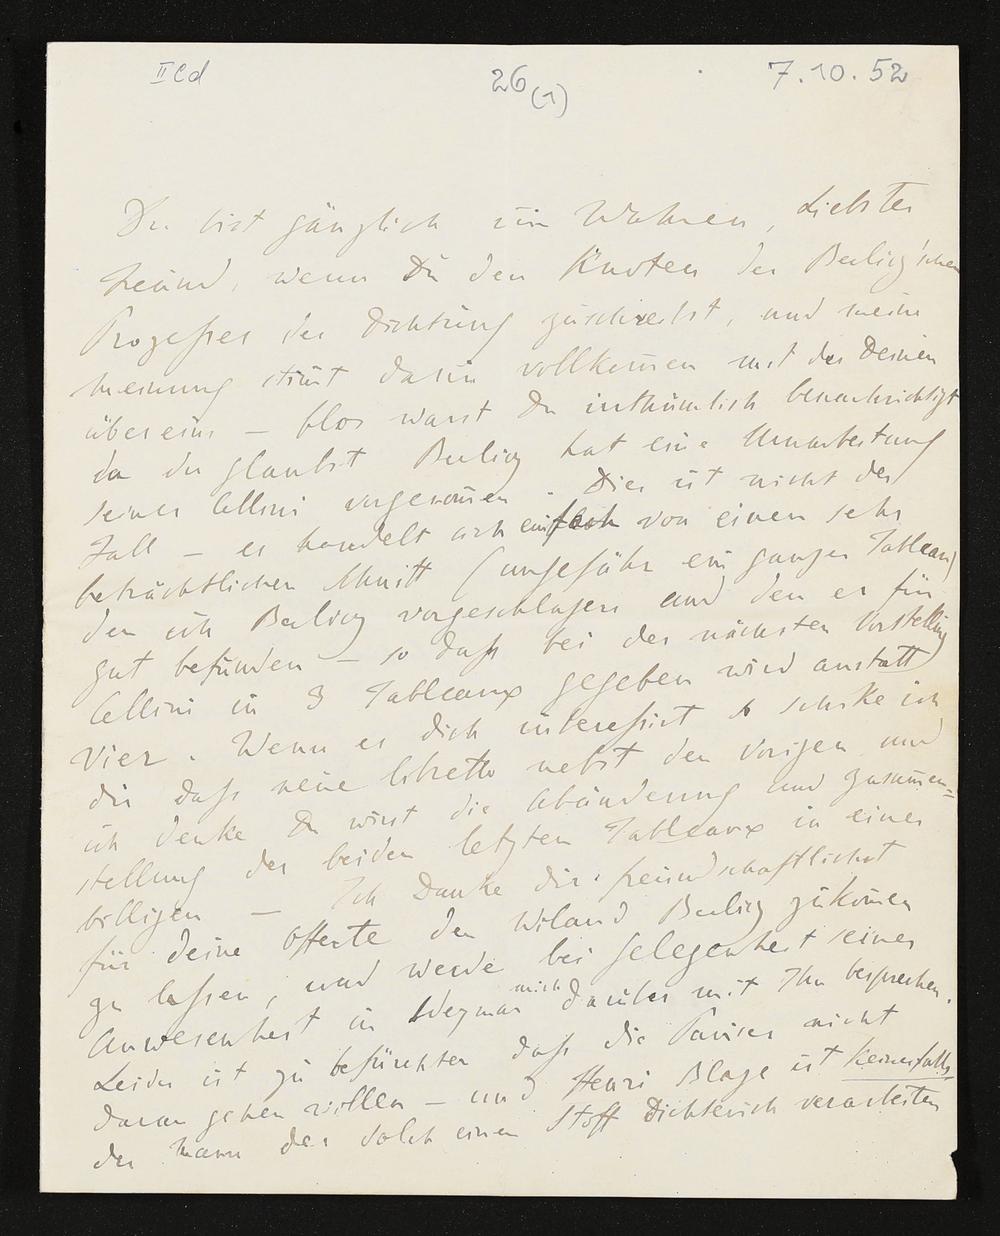 II Cd
26 (1)
7.10.52
Du bist gänzlich im Wahren, Liebster
Freund, wenn Du den Knoten des Berlioz'schen
Prozesses der Dichtung zuschreibst, und meine
Meinung stim̅t darin vollkom̅en mit der Deinen
überein – blos warst Du irrthümlich benachrichtigt
da du glaubst Berlioz hat eine Umarbeitung
seines Cellini vorgenom̅en. Dies ist nicht der
Fall – es handelt sich einfach von einem sehr
beträchtlichen Schnitt (ungefähr ein ganzes Tableau)
den ich Berlioz vorgeschlagen und den er für
gut befunden – so daß bei der nächsten Vorstellung
Cellini in 3 Tableaux gegeben wird anstatt
Vier. Wenn es dich interessirt so schicke ich
dir daß neue libretto nebst den Vorigen und
ich denke Du wirst die Abänderung und Zusam̅en=
stellung der beiden letzten Tableaux in einen
billigen – Ich danke dir freundschaftlichst
für deine Offerte den Wiland Berlioz zukom̅en
zu lassen, und werde bei Gelegenheit seiner
Anwesenheit in Weymar mich darüber mit Ihm besprechen.
Leider ist zu befürchten daß die Pariser nicht
daran gehen wollen – und Henri Blaze ist keinesfalls
der Mann der solch einen Stoff dichterisch verarbeiten